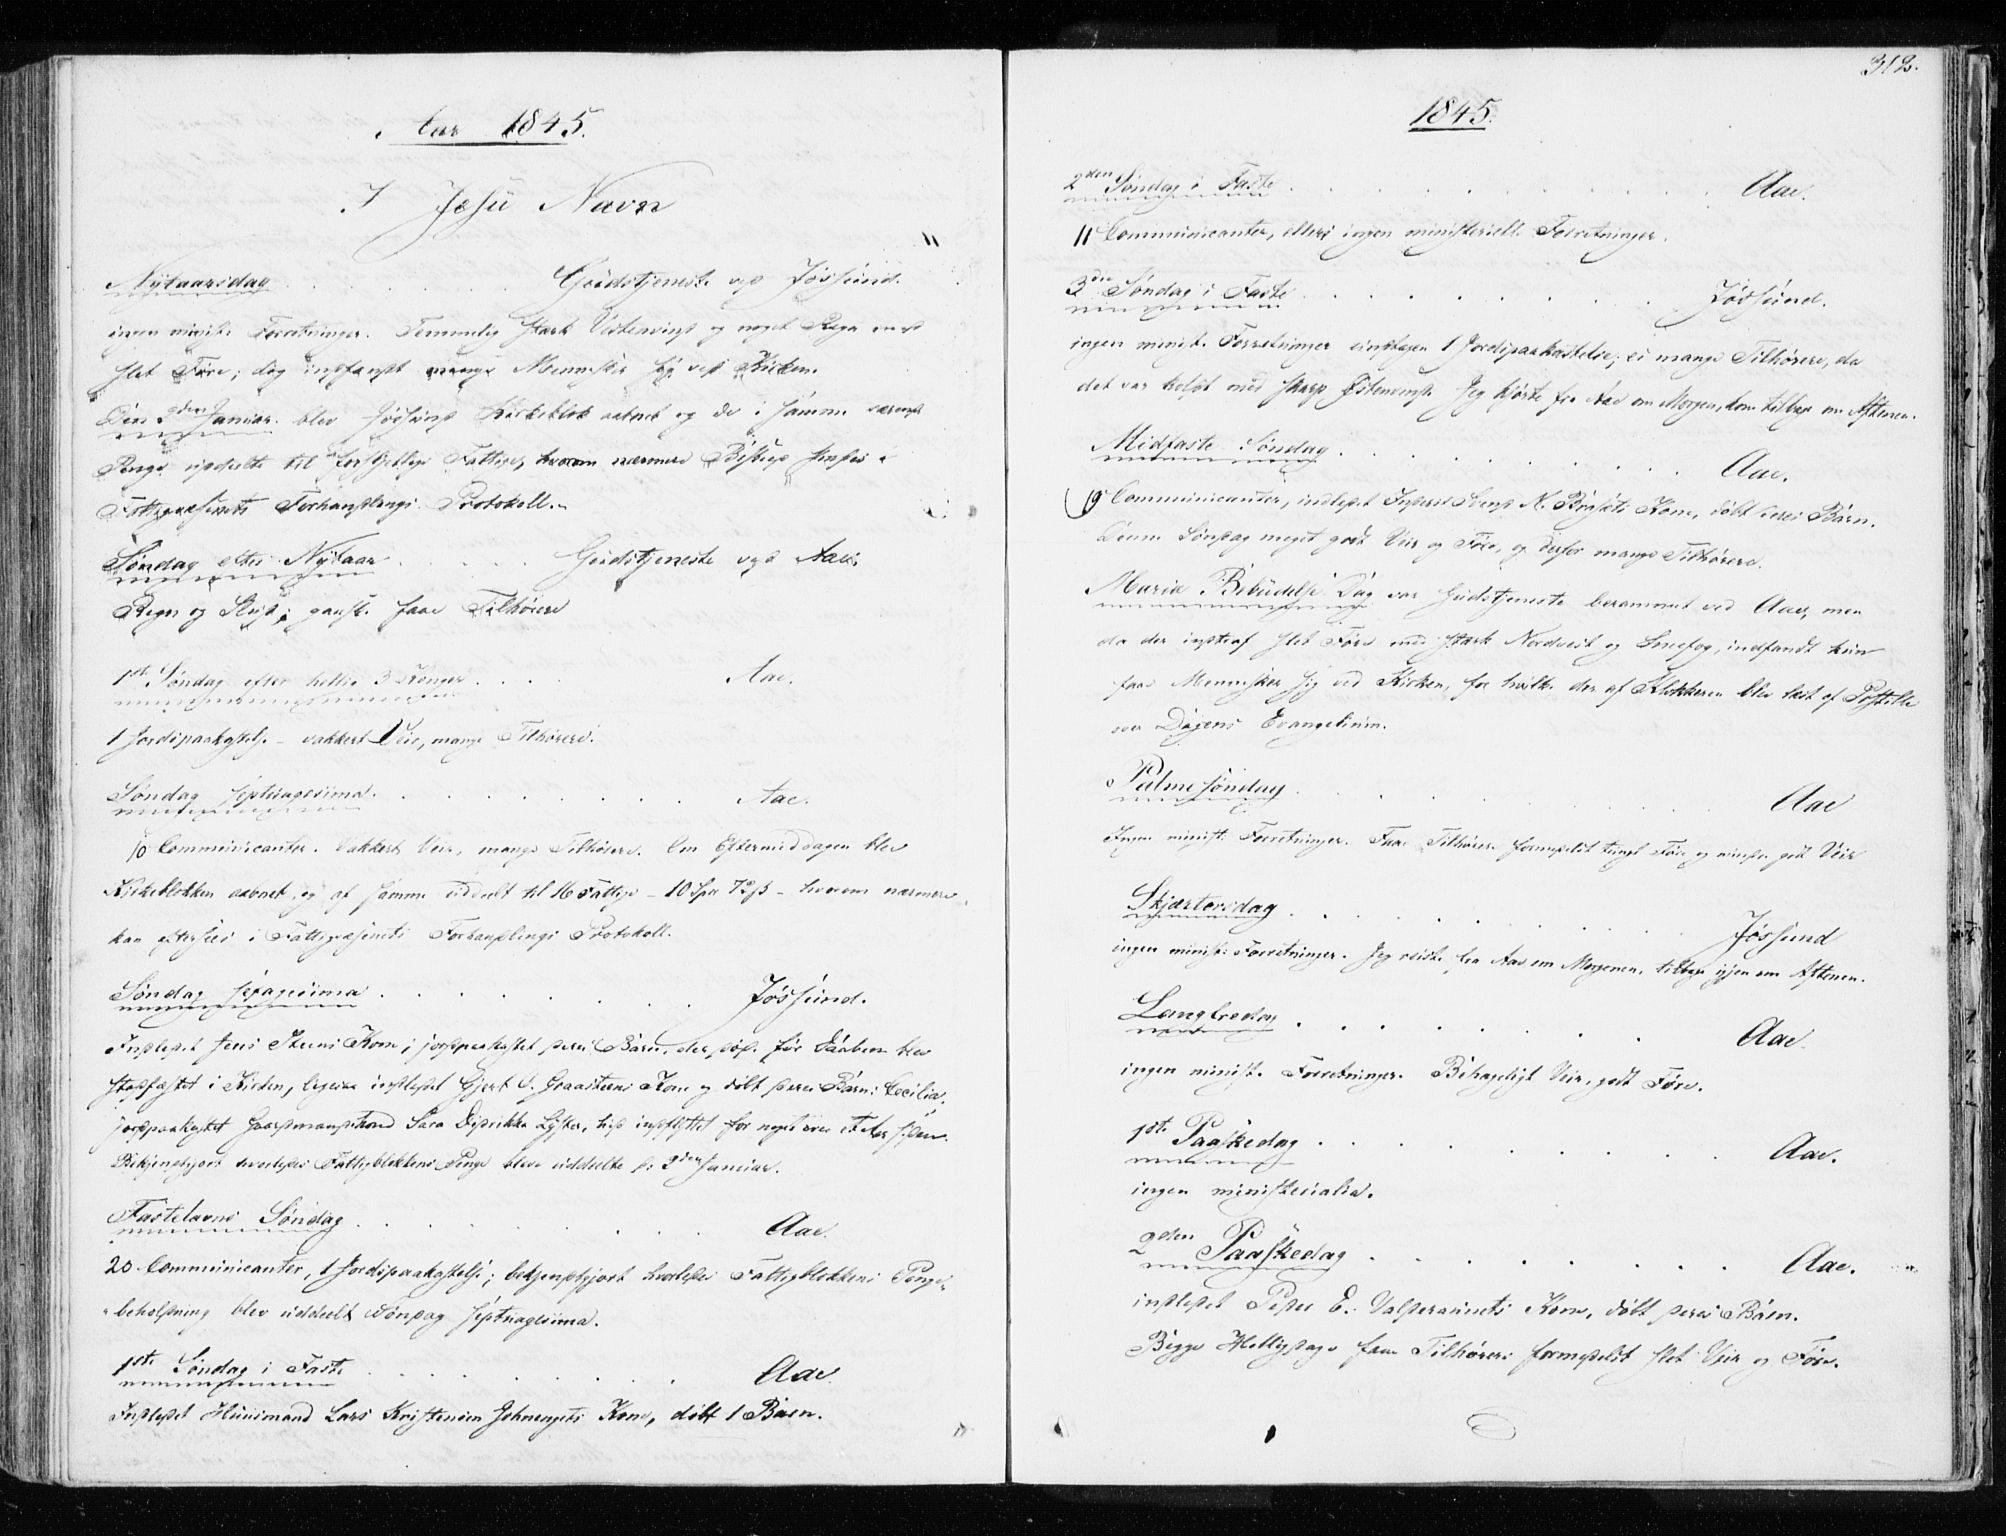 Aar 1845.
I Jesu Navn
Nytaarsdag . . . . . . Gudstjeneste ved Jössund.
ingen minist: Forretninger. Temmelig stærk Vestenvind og noget Regn med
slet Före; dog indfandt mange Mennesker sig ved Kirken.
Den 2den Januar blev Jössund Kirkeblok aabnet og de i samme værende
Penge uddeelte til forskjellige Fattige, hvorom nærmere
Fattigvæsenets Forhandlings Protokoll.
Söndag efter Nytaar . . . . . Gudstjeneste ved Aae.
Regn og Slud; ganske faae Tilhörere
1ste Söndag efter hellig 3 Konger . . . . Aae.
1 Jordspaakastelse - vakkert Veir, mange Tilhörere.
Söndag septuagesima. . . . . . . . Aae.
10 Communicanter. Vakkert Veir, mange Tilhörere. Om Eftermiddagen blev
Kirkeblokken aabnet og af samme uddeelt til 16 Fattige - 10 Spd 72 ß - hvorom nærmere
kan eftersees i Fattigvæsenets Forhandlings Protokoll.
Söndag sexagesima . . . . . . . . Jössund.
Indledet Jens Steens Kone; jordpaakastet deres Barn, der död för Daaben blev
stedfæstet i Kirken, ligesaa indledet Gjert O. Graasteens Kone og döbt deres Barn: Cecilia.
jordpaakastet Gaardmandskone Sara Didrikka Lyster, hid indflyttet for noget over et Aar siden.
Bekjendtgjort hvorledes Fattigblokkens Penge bleve uddeelte d: 2den Januar.
Fastelavns Söndag . . . . . . . Aae.
20 Communicanter, 1 Jordspaakastelse; bekjendtgjort hvorledes Fattigblokkens Penge-
beholdning blev uddeelt Söndag septuagesima.
1ste Söndag i Faste . . . . . . . . Aae.
Indledet Huusmand Lars Kristensen Johnengets Kone, döbt 1 Barn.
312.
1845.
2den Söndag i Faste . . . . . . . . . . . Aae.
11 Communicanter, ellers ingen ministerielle Forretninger.
3die Söndag i Faste . . . . . . . . . Jössund.
ingen minist. Forretninger undtagen 1 Jordspaakastelse; ei mange Tilhörere, da
det var koldt med skarp Östenvind. Jeg kjörte fra Aae om Morgen, kom tilbage om Aftenen.
Midfaste Söndag . . . . . . . . . . Aae.
9 Communicanter, indledet Inderst Svend N. Kone, döbt deres Barn.
Denne Söndag meget godt Veir og Före, og derfor mange Tilhörere.
Mariæ Bebudelse Dag var Gudstjeneste berammet ved Aae, men
da der indtraf slet Före med stærk Nordvest og Sneefog, indfandt kun
faae Mennesker sig ved Kirken, for hvilke der af Klokkeren blev læst af Postille
over Dagens Evangelium.
Palmesöndag . . . . . . . . . . Aae
Ingen minist: Forretninger. Faae Tilhörere formedelst tungt Före og mindre godt Veir
Skjærtorsdag . . . . . . . . . Jössund
ingen minist: Forretninger. Jeg reiste fra Aae om Morgenen, tilbage igjen om Aftenen.
Langfredag . . . . . . . . Aae.
ingen minist. Forretninger. Behageligt Veir, godt Före.
1ste Paaskedag . . . . . . . . Aae.
ingen ministerialia.
2den Paaskedag . . . . . . . . . Aae.
indledet Peder E. Valsøraunets Kone, döbt deres Barn.
Begge Helligdage faae Tilhörere formedelst slet Veir og Före.